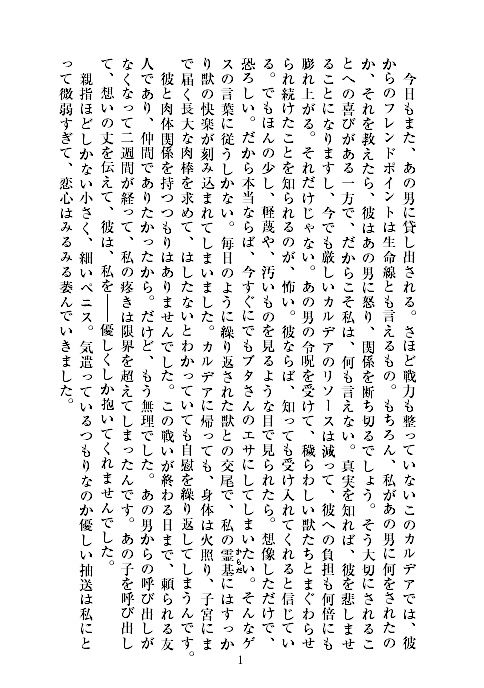 今日もまた、あの男に貸し出される。さほど戦力も整っていないこのカルデアでは、彼
からのフレンドポイントは生命線とも言えるもの。もちろん、私があの男に何をされたの
か、それを教えたら、彼はあの男に怒り、関係を断ち切るでしょう。そう大切にされるこ
とへの喜びがある一方で、だからこそ私は、何も言えない。真実を知れば、彼を悲しませ
ることになりますし、今でも厳しいカルデアのリソースは減って、彼への負担も何倍にも
膨れ上がる。それだけじゃない。あの男の令呪を受けて、穢らわしい獣たちとまぐわらせ
られ続けたことを知られるのが、怖い。彼ならば、知っても受け入れてくれると信じてい
る。でもほんの少し、軽蔑や、汚いものを見るような目で見られたら。想像しただけで、
恐ろしい。だから本当ならば、今すぐにでもブタさんのエサにしてしまいたい。そんなゲ
スの言葉に従うしかない。毎日のように繰り返された獣との交尾で、私の霊基にはすっか
り獣の快楽が刻み込まれてしまいました。カルデアに帰っても、身体は火照り、子宮にま
で届く長大な肉棒を求めて、はしたないとわかっていても自慰を繰り返してしまうんです。
　彼と肉体関係を持つつもりはありませんでした。この戦いが終わる日まで、頼られる友
人であり、仲間でありたかったから。だけど、もう無理でした。あの男からの呼び出しが
なくなって二週間が経って、私の疼きは限界を超えてしまったんです。あの子を呼び出し
て、想いの丈を伝えて、彼は、私を――優しくしか抱いてくれませんでした。
　親指ほどしかない小さく、細いペニス。気遣っているつもりなのか優しい抽送は私にと
って微弱すぎて、恋心はみるみる萎んでいきました。
からだ
1